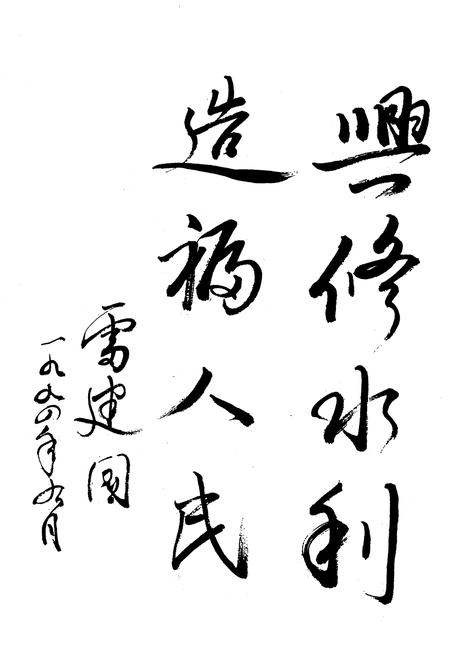 興修水利
造福人民
雷建国
一九九四年九月